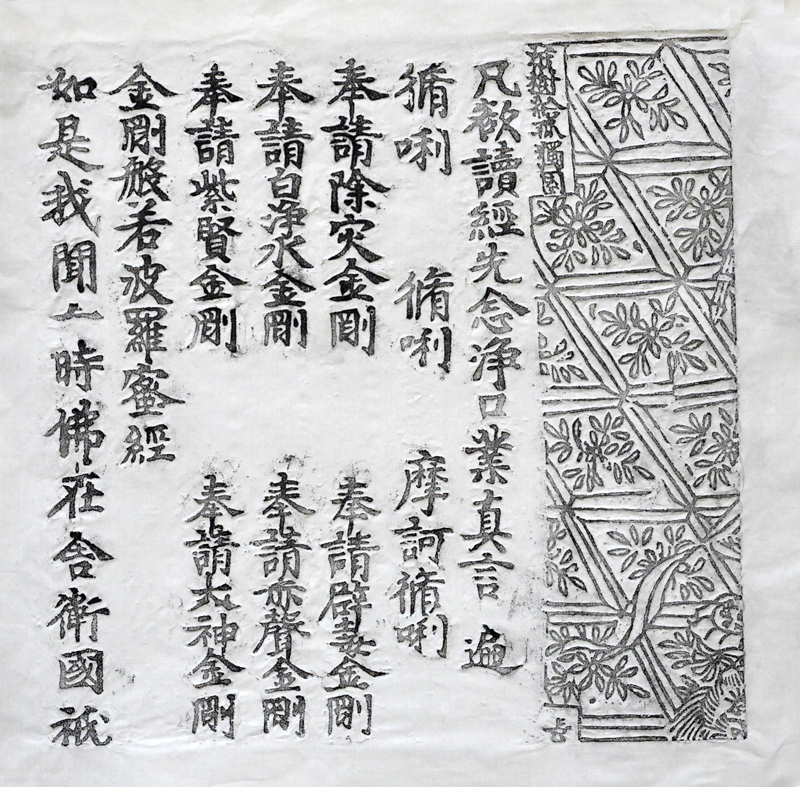 祇樹給孤獨園
凡欲讀經先念浄口業真言 遍
脩唎 脩唎 摩訶脩唎
奉請除灾金剛 奉請辟毒金剛
奉請白浄水金剛 奉請赤聲金剛
奉請紫賢金剛 奉請大神金剛
金剛般若波羅蜜經
如是我聞一時佛在舍衛國祇